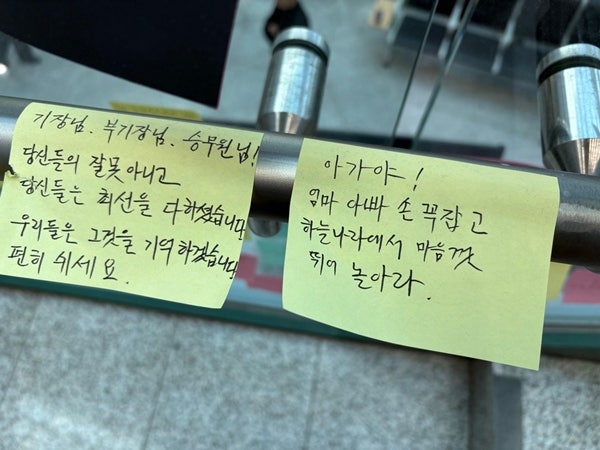 기장님. 부기장님. 승무원님!
당신들의 잘못아니고
당신들는 최선을 다하셨습니다
우리들은 그것을 기억하겠습니다
편히 쉬세요.
아가야!
엄마 아빠 손 꼭잡고
하늘나라에서 마음껏
뛰어 놀아라.